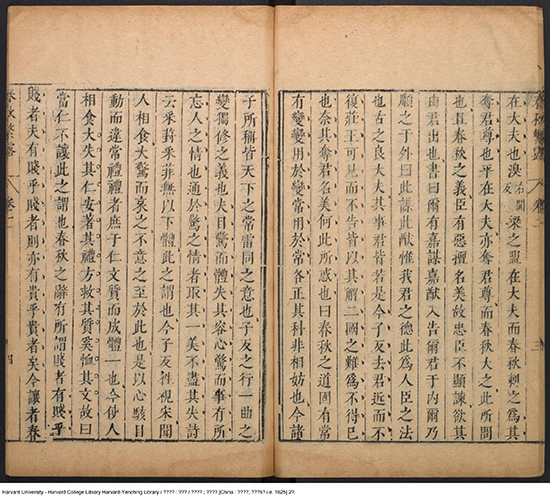 在大夫也溴右闃反梁之盟在大夫而春秋刺之爲其
奪君尊也平在大夫亦奪君尊而春秋大之此所間
也且春秋之義臣有惡擅名美故忠臣不顯諫欲其
由君出也書曰爾有嘉謀嘉猷入告爾君于內爾乃
順之于外曰此謀此猷惟我君之德此爲人臣之法
也古之良大夫其事君皆若是今子反去君近而不
復莊王可見而不告皆以其解二國之難爲不得已
也奈其奪君名美何此所惑也曰春秋之道固有常
有變變用於變常用於常各正其科非相妨也今諸
子所稱皆天下之常雷同之意也子反之行一曲之
變獨修之義也夫目驚而體失其容心驚而事有所
忘人之情也通於驚之情者取其一美不盡其失詩
云采葑采菲無以下體此之謂也今子反往視宋聞
人相食大驚而哀之不意之至於此也是以心駭目
動而違常禮禮者庶于仁文質而成體一也今使人
相食大失其仁安著其禮方救其質奚恤其文故曰
當仁不讓此之謂也春秋之辭有所謂賤者有賤乎
賤者夫有賤乎賤者則亦有貴乎貴者矣今讓者春
四
Harvard University - Harvard College Library Harvard-Yenching Library / ???? : ??? / ???? ; ???? [China : ????, ???5? i.e. 1625] 27.